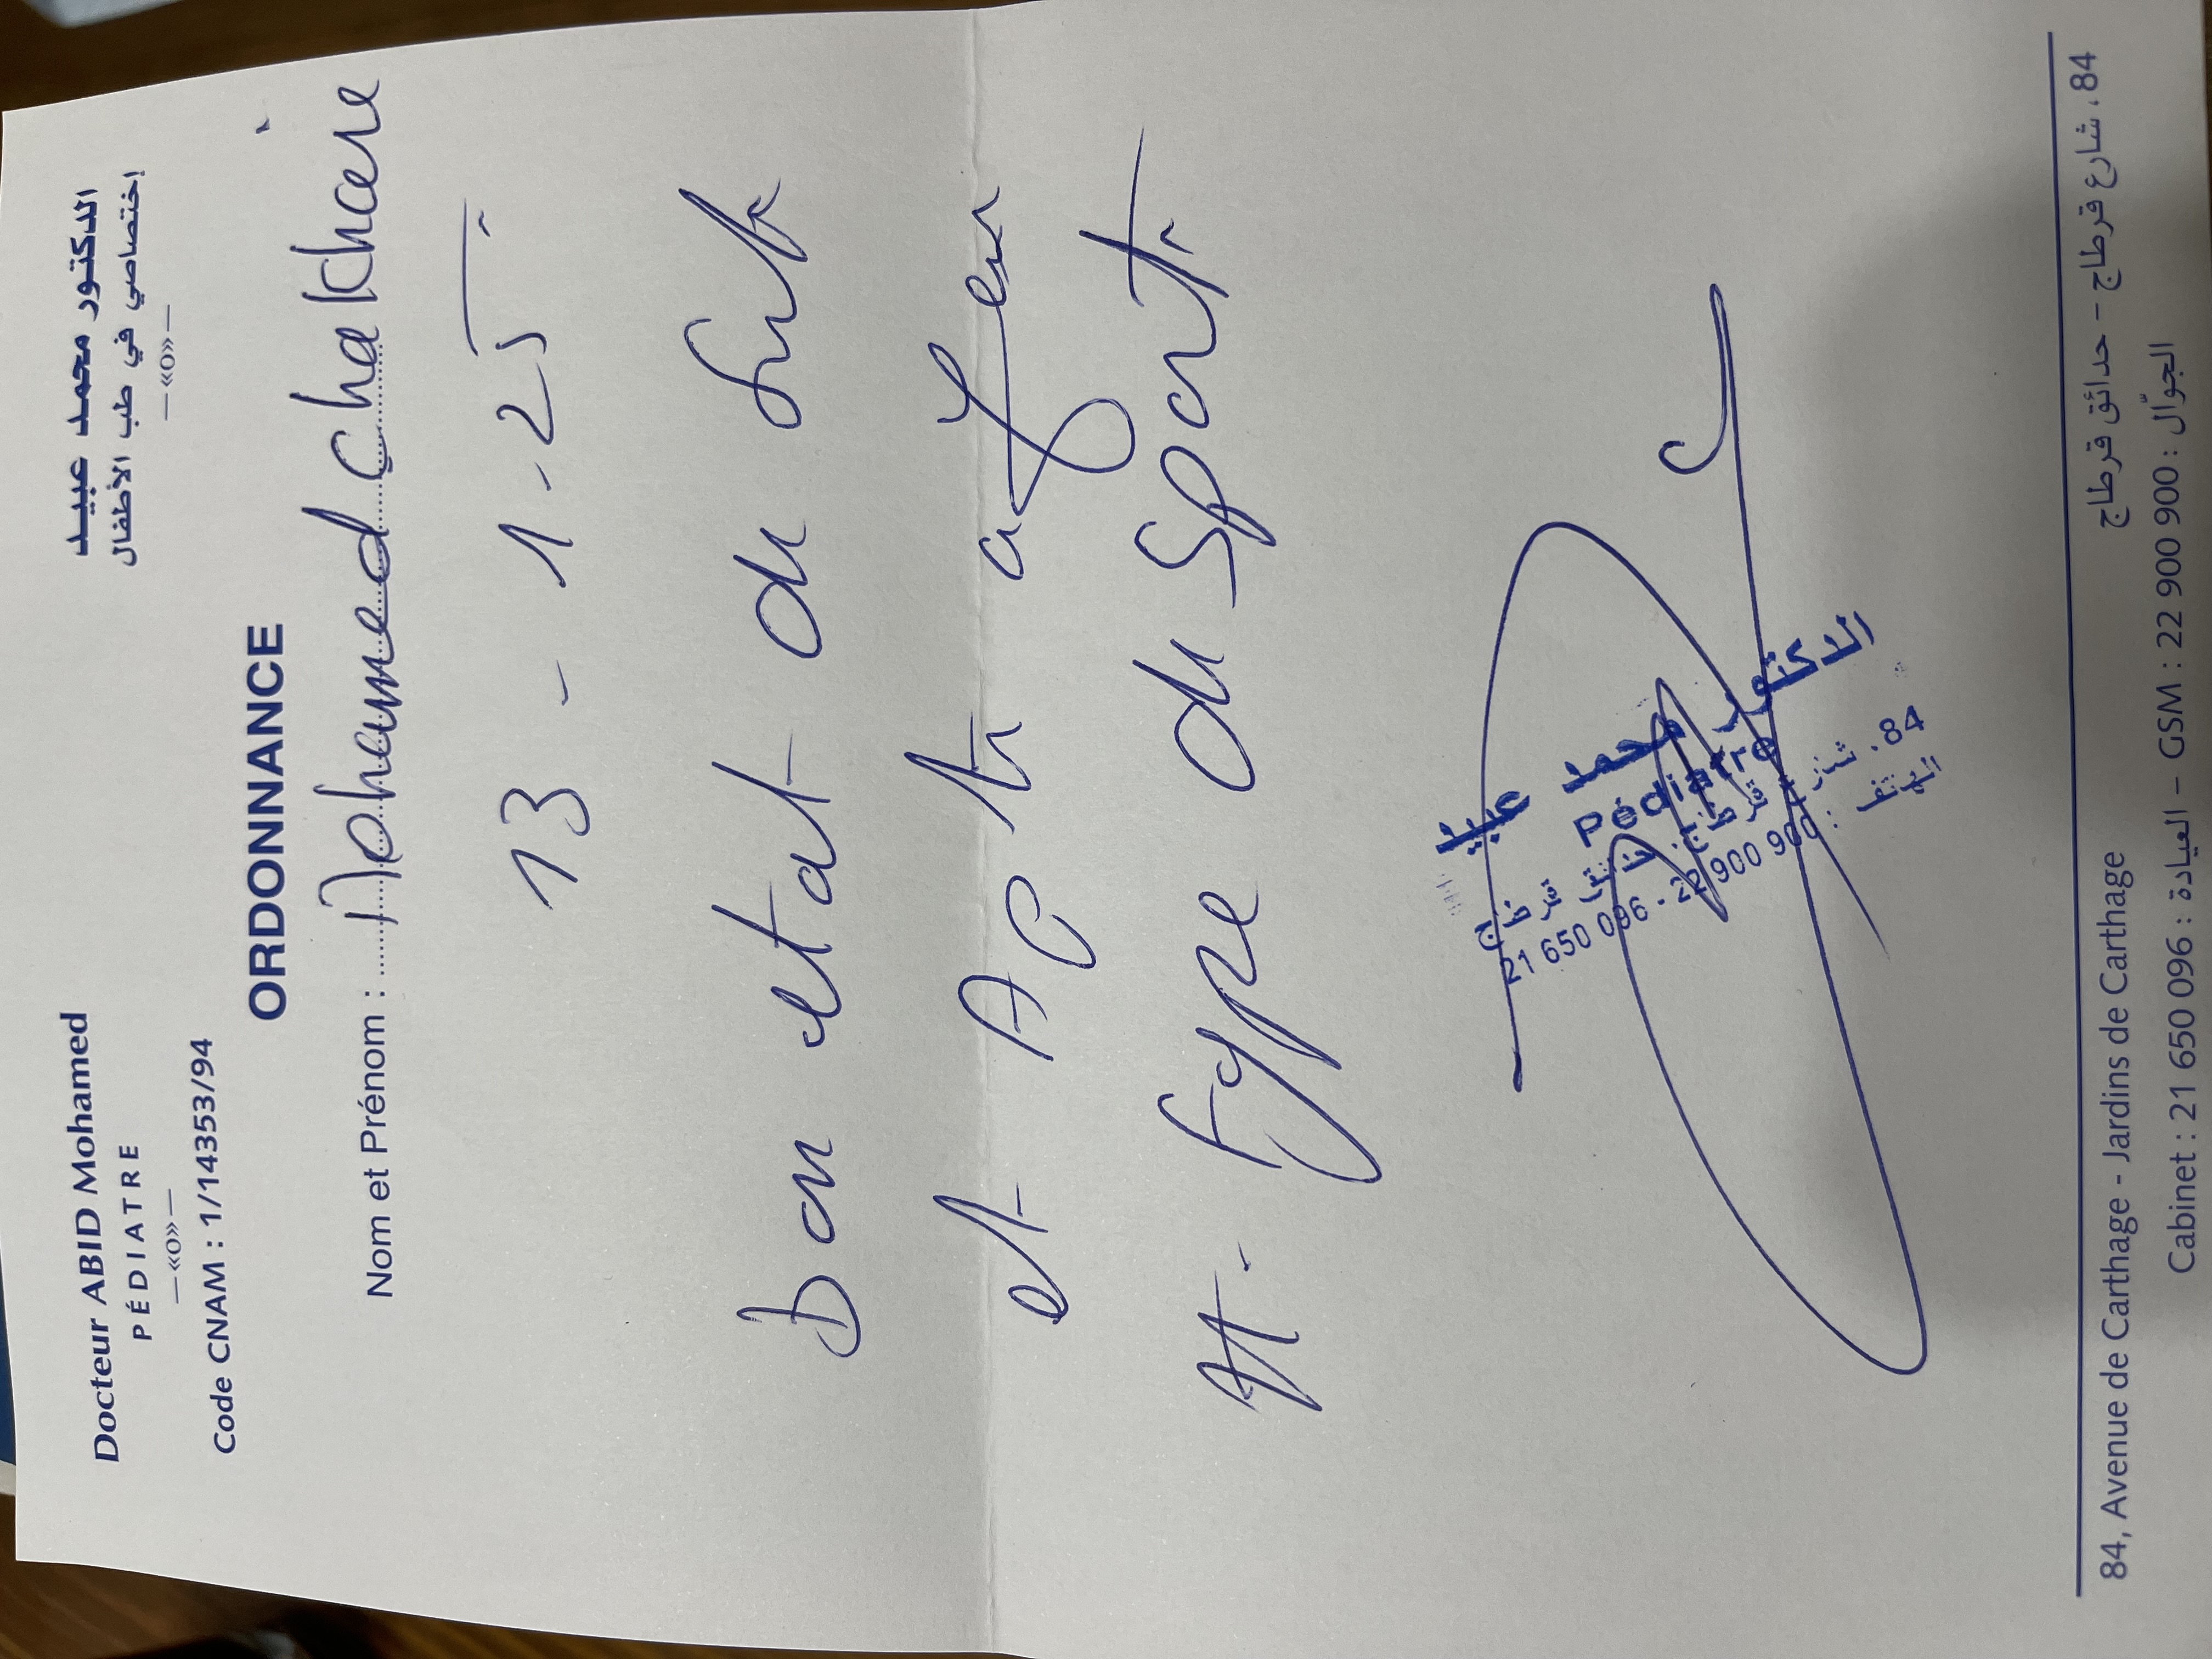 Docteur ABID Mohamed
PÉDIATRE
—«o»—
Code CNAM : 1/14353/94
الدكتور محمد عبيد
إختصاصي في طب الأطفال
—«o»—
ORDONNANCE
Nom et Prénom : Mohamed Chakchem
13 - 1 - 25
bon etat de
et AP a
type de Sport.
الدكتور محمد عبيد
Pédiatre
84، شارع قرطاج حدائق قرطاج
الهاتف : 21 650 096 - 22 900 900
84, Avenue de Carthage - Jardins de Carthage
84، شارع قرطاج – حدائق قرطاج
Cabinet : 21 650 096 : العيادة – GSM : 22 900 900 : الجوّال